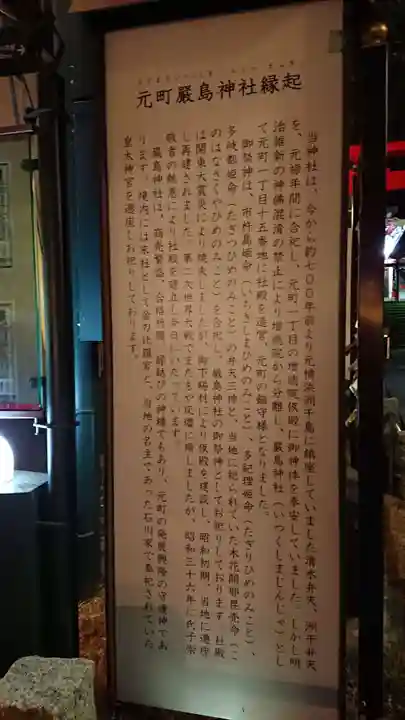 元町嚴島神社縁起
当神社は、今から約七〇〇年前より元横浜洲干島に鎮座していました清水弁天、洲干弁天
を、元禄年間に合祀し、元町一丁目の増徳院仮殿に御神体を奉安していました。しかし明
治維新の神佛混淆の禁止により増徳院から分離し、嚴島神社（いつくしまじんじゃ）とし
て元町一丁目十五番地に社殿を造営、元町の鎮守様となりました。
御祭神は、市杵島姫命（いちきしまひめのみこと）、多紀理姫命（たぎりひめのみこと）、
多岐都姫命（たぎつひめのみこと）の弁天三体と、当地に祀られていた木花開耶昆売命（こ
のはなさくやひめのみこと）を合祀し、嚴島神社の御祭神としてお祀りしております。社殿
は関東大震災により焼失しましたが、御下賜材により仮殿を建設し、昭和初期、当地に遷座
し再建されました。第二次世界大戦でまたもや灰塵に帰しましたが、昭和三十六年に氏子崇
敬者の熱意により社殿を建立し今日にいたっています。
嚴島神社は、商売繁盛、合格祈願、縁結びの神様でもあり、元町の発展興隆の守護神であ
ります。境内には末社として金刀比羅宮と、当地の名主であった石川家で奉祀されていた
皇太神宮を遷座しお祀りしております。